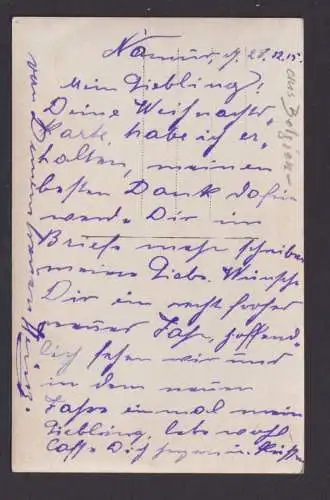 Namur, d. 28.12.15.
Mein Liebling!
Deine Weihnachts
Karte, habe ich er,
halten, meinen
besten Dank dafür
werde Dir im
Briefe mehr schreiben
meine Liebe. Wünsche
Dir ein recht frohes
neues Jahr, hoffend,
lich sehen wir uns
in dem neuen
Jahre einmal mein
Liebling, lebe wohl
Lasse Dich
von Deinem Heinz.
aus Belgien